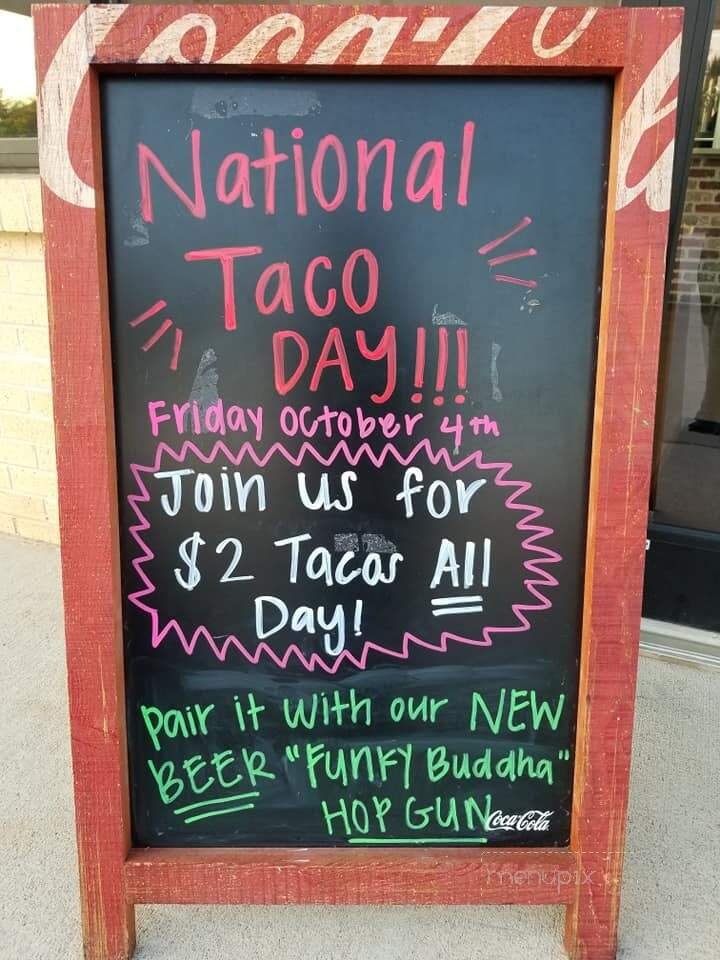 Coca-Cola
National
Taco
DAY!!!
Friday October 4th
Join us for
$2 Tacos All
Day!
pair it with our NEW
BEER "Funky Buddha"
HOP GUN
Coca-Cola
menupix